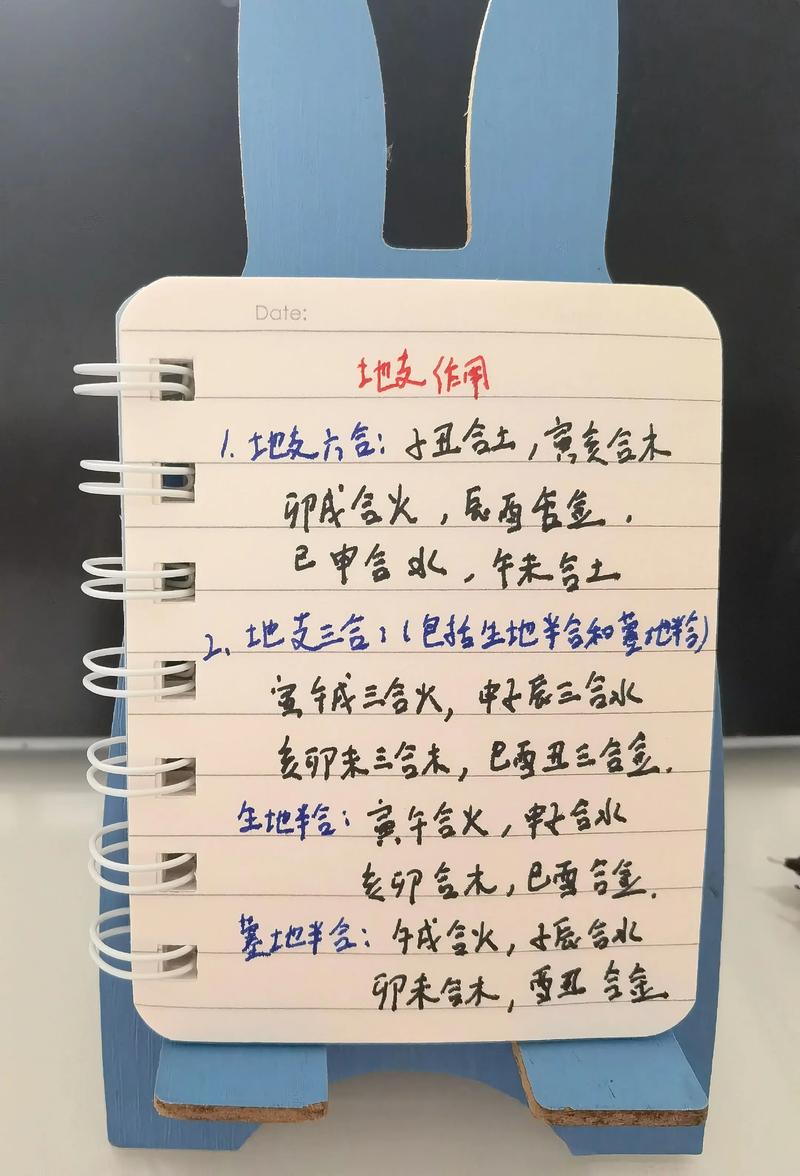 Date:
地支作用
1. 地支六合：子丑合土，寅亥合木
卯戌合火，辰酉合金.
巳申合水，午未合土
2. 地支三合：（包括生地半合和墓地半合）
寅午戌三合火，申子辰三合水
亥卯未三合木，巳酉丑三合金.
生地半合：寅午合火，申子合水
亥卯合木，巳酉合金.
墓地半合：午戌合火，子辰合水
卯未合木，酉丑合金.